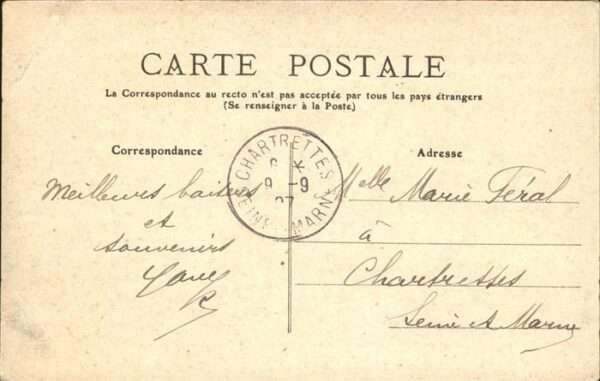 CARTE POSTALE
La Correspondance au recto n'est pas acceptée par tous les pays étrangers
(Se renseigner à la Poste)
Correspondance
Adresse
CHARTRETTES
9 -9
07
SEINE MARNE
Meilleurs baisers
et
souvenirs
Melle Marie Féral
à
Chartrettes
Seine et Marne